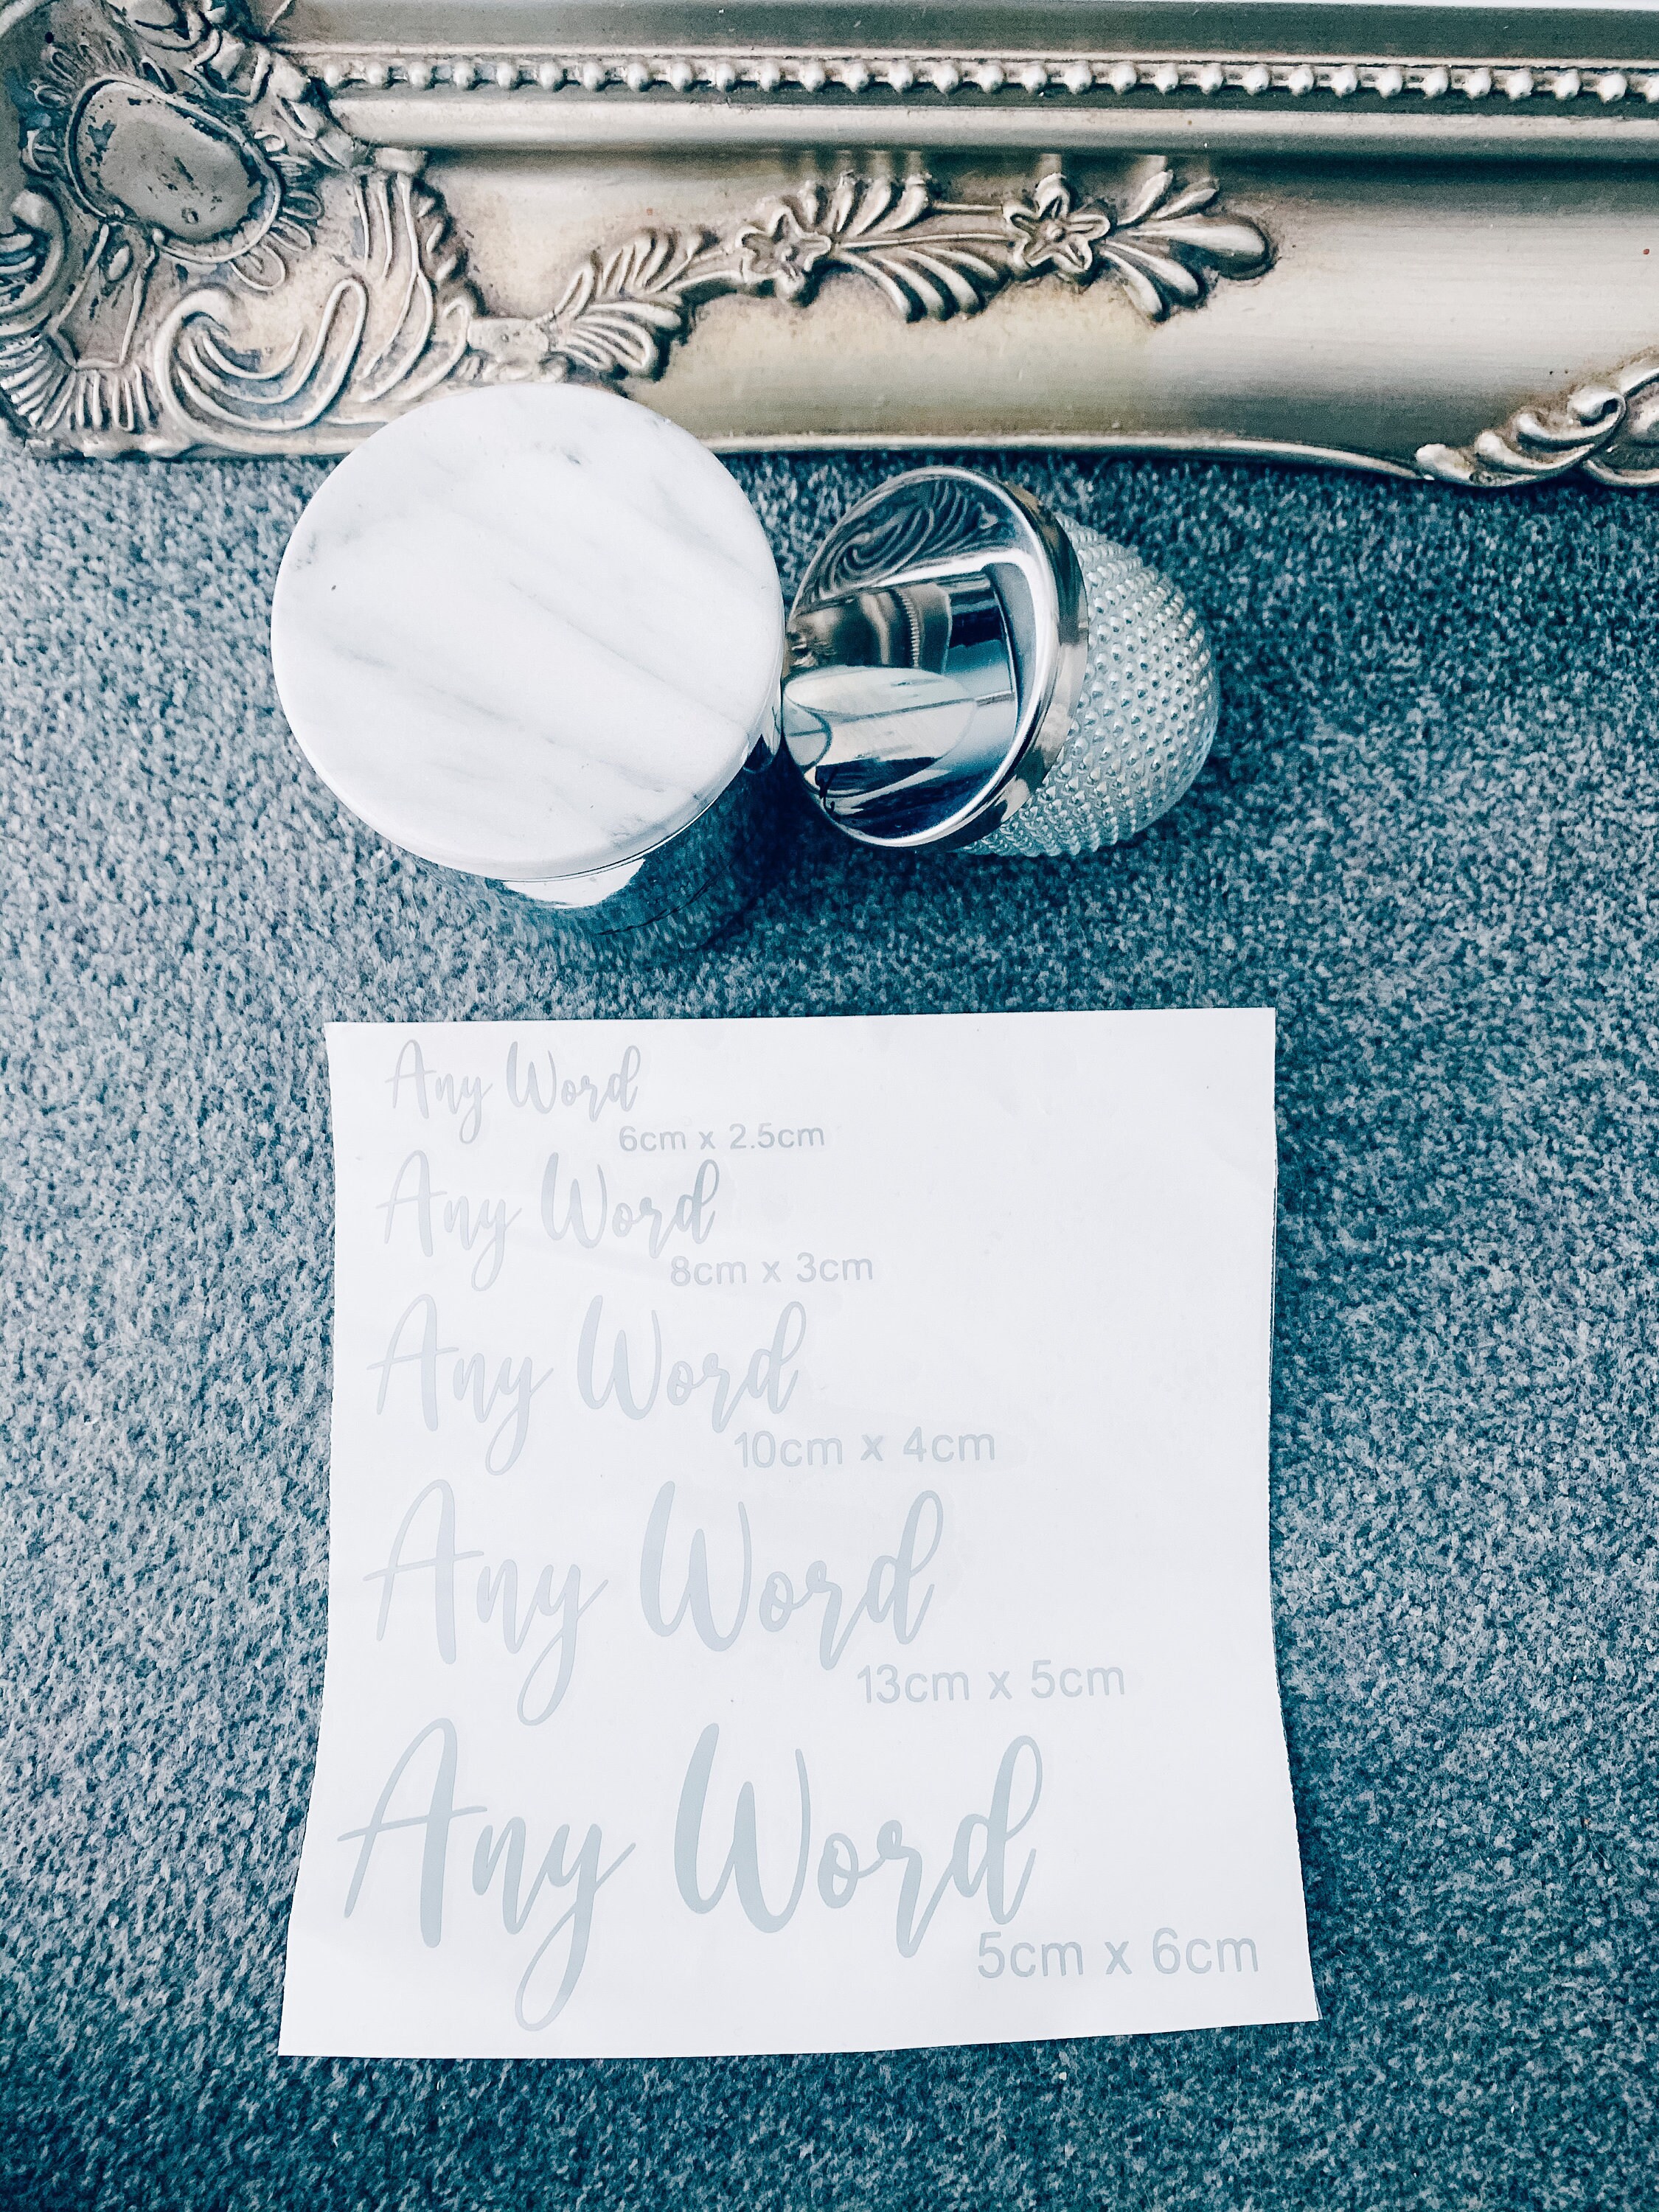 Any Word
6cm x 2.5cm
Any Word
8cm x 3cm
Any Word
10cm x 4cm
Any Word
13cm x 5cm
Any Word
5cm x 6cm